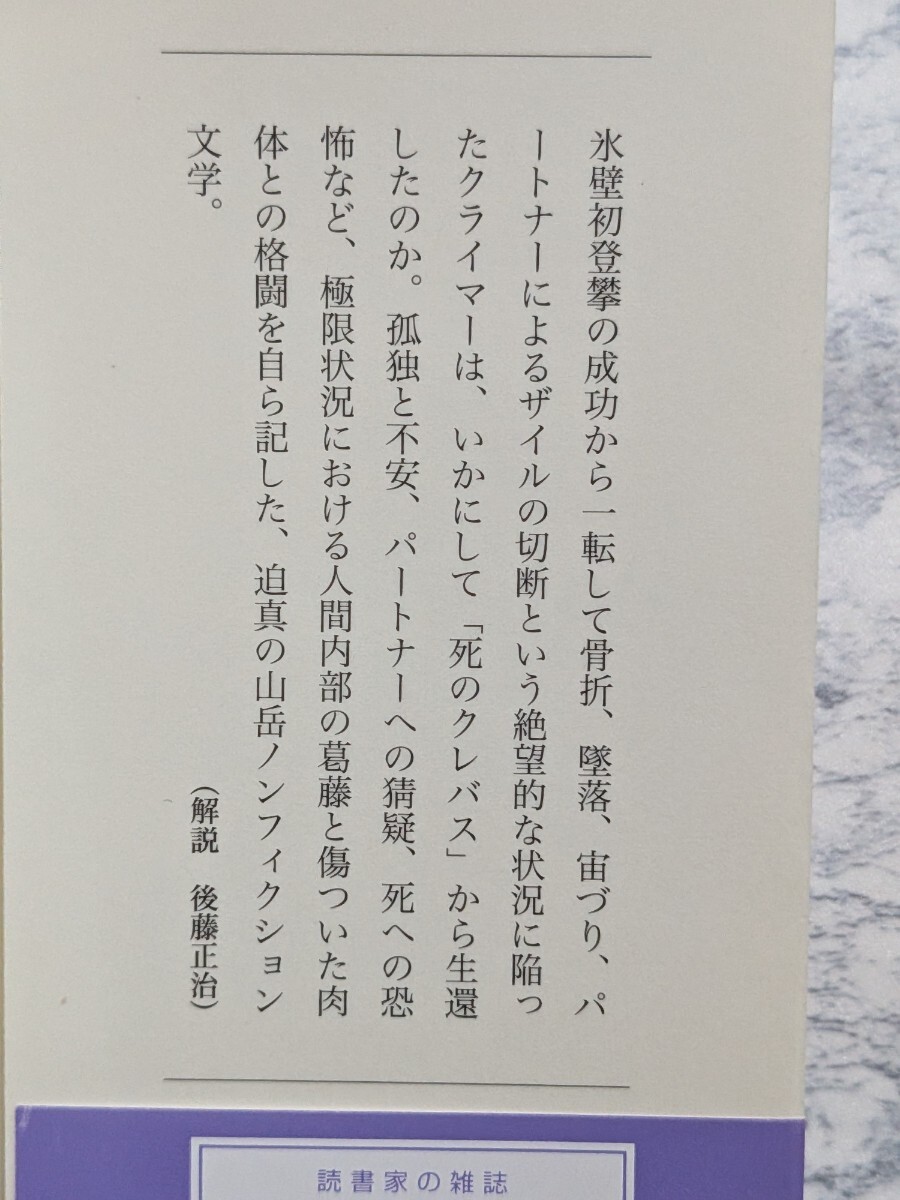 氷壁初登攀の成功から一転して骨折、墜落、宙づり、パ
ートナーによるザイルの切断という絶望的な状況に陥っ
たクライマーは、いかにして「死のクレバス」から生還
したのか。孤独と不安、パートナーへの猜疑、死への恐
怖など、極限状況における人間内部の葛藤と傷ついた肉
体との格闘を自ら記した、迫真の山岳ノンフィクション
文学。
（解説　後藤正治）
読書家の雑誌